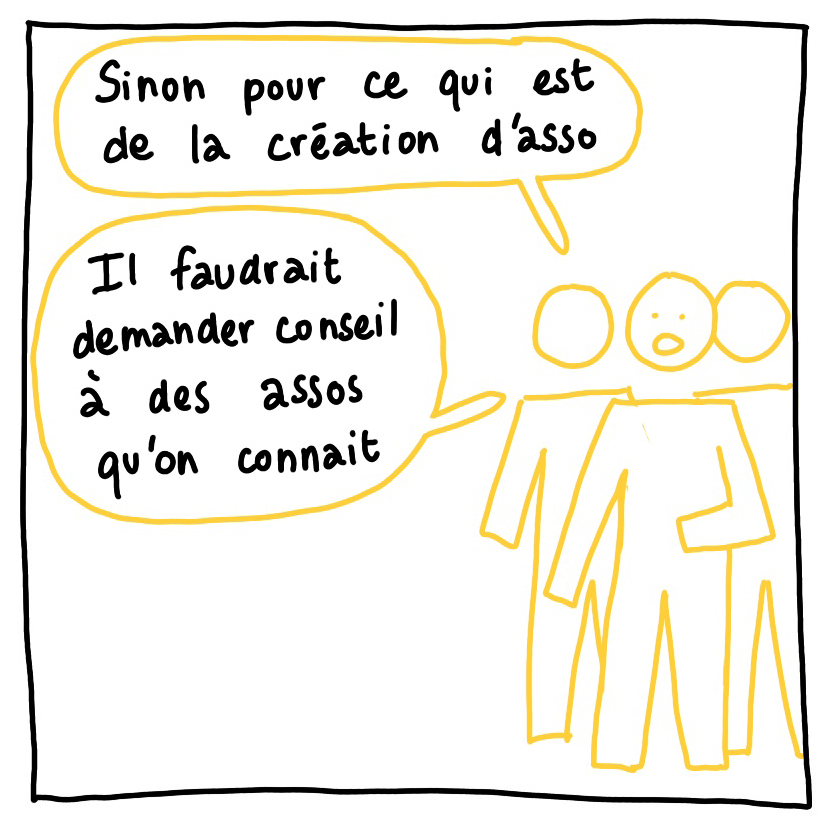 Sinon pour ce qui est
de la création d'asso
Il faudrait
demander conseil
à des assos
qu'on connait